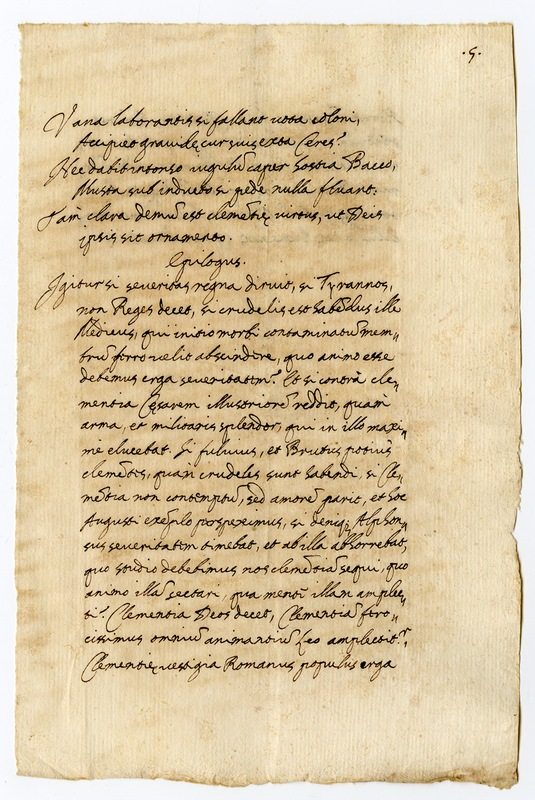 .5.
Vana laborantis si fallant vota coloni,
Accipiet gravidę cur suis exta Ceres?
Nec dabit intonso iugulũ caper hostia Bacco,
Musta sub inducto si pede nulla fluant.
Tam clara demũ est clemẽtię virtus, ut Deis
ipsis sit ornamento.
Epilogus.
Igitur si severitas regna diruit, si Tyrannos,
non Reges decet, si crudelis est habẽdus ille
Medicus, qui initio morbi contaminatũ mem„
brũ ferro velit abscindere, quo animo esse
debemus erga severitatem? Et si contrà cle„
mentia Cęsarem illustriorẽ reddit, quam
arma, et militaris splendor, qui in illo maxi„
mè elucebat. Si fulvius, et Brutus potius
clemẽtes, quam crudeles sunt habendi, si Cle„
mẽtia non contemptũ, sed amorẽ parit, et hoc
Augusti exẽplo perspeximus, si deniq; Alphon„
sus severitatem timebat, et ab illa abhorrebat,
quo studio debebimus nos clemẽtiã sequi, quo
animo illã sectari, qua menti illam amplec„
ti? Clementia Deos decet, Clementiã fero„
cissimus omniũ animantiũ Leo amplectitr,
Clementię vestigia Romanus populus erga